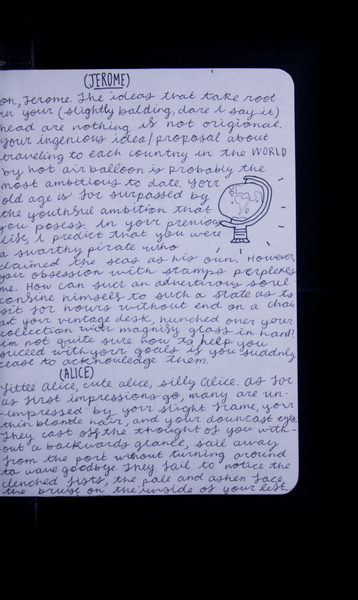 (JEROME)
on, Jerome. The ideas that take root
in your (slightly balding, dare i say it)
head are nothing iS not origional.
Your ingenious idea/proposal about
traveling to each country in the WORLD
by hot air balloon is probably the
most ambitious to date. Your
old age is far surpassed by
the youthful ambition that
you posess. In your previous
life, I predict that you were
a swarthy pirate who
claimed the seas as his own. However,
your obsession with stamps perplexes
me. How can such an adventurous soul
confine himself to such a state as to
sit for hours without end on a chair
at your vintage desk, hunched over your
collection with magnify glass in hand?
im not quite sure how to help you
suceed with your goals if you suddenly
cease to acknowledge them.
(ALICE)
little alice, cute alice, silly alice. As far
as first impressions go, many are un-
impressed by your slight frame, your
thin blonde hair, and your downcast eyes.
They cast off the thought of you with-
out a backwards glance, sail away
from the port without turning around
to wave goodbye. They fail to notice the
clenched fists, the pale and ashen face,
the bruise on the inside of your